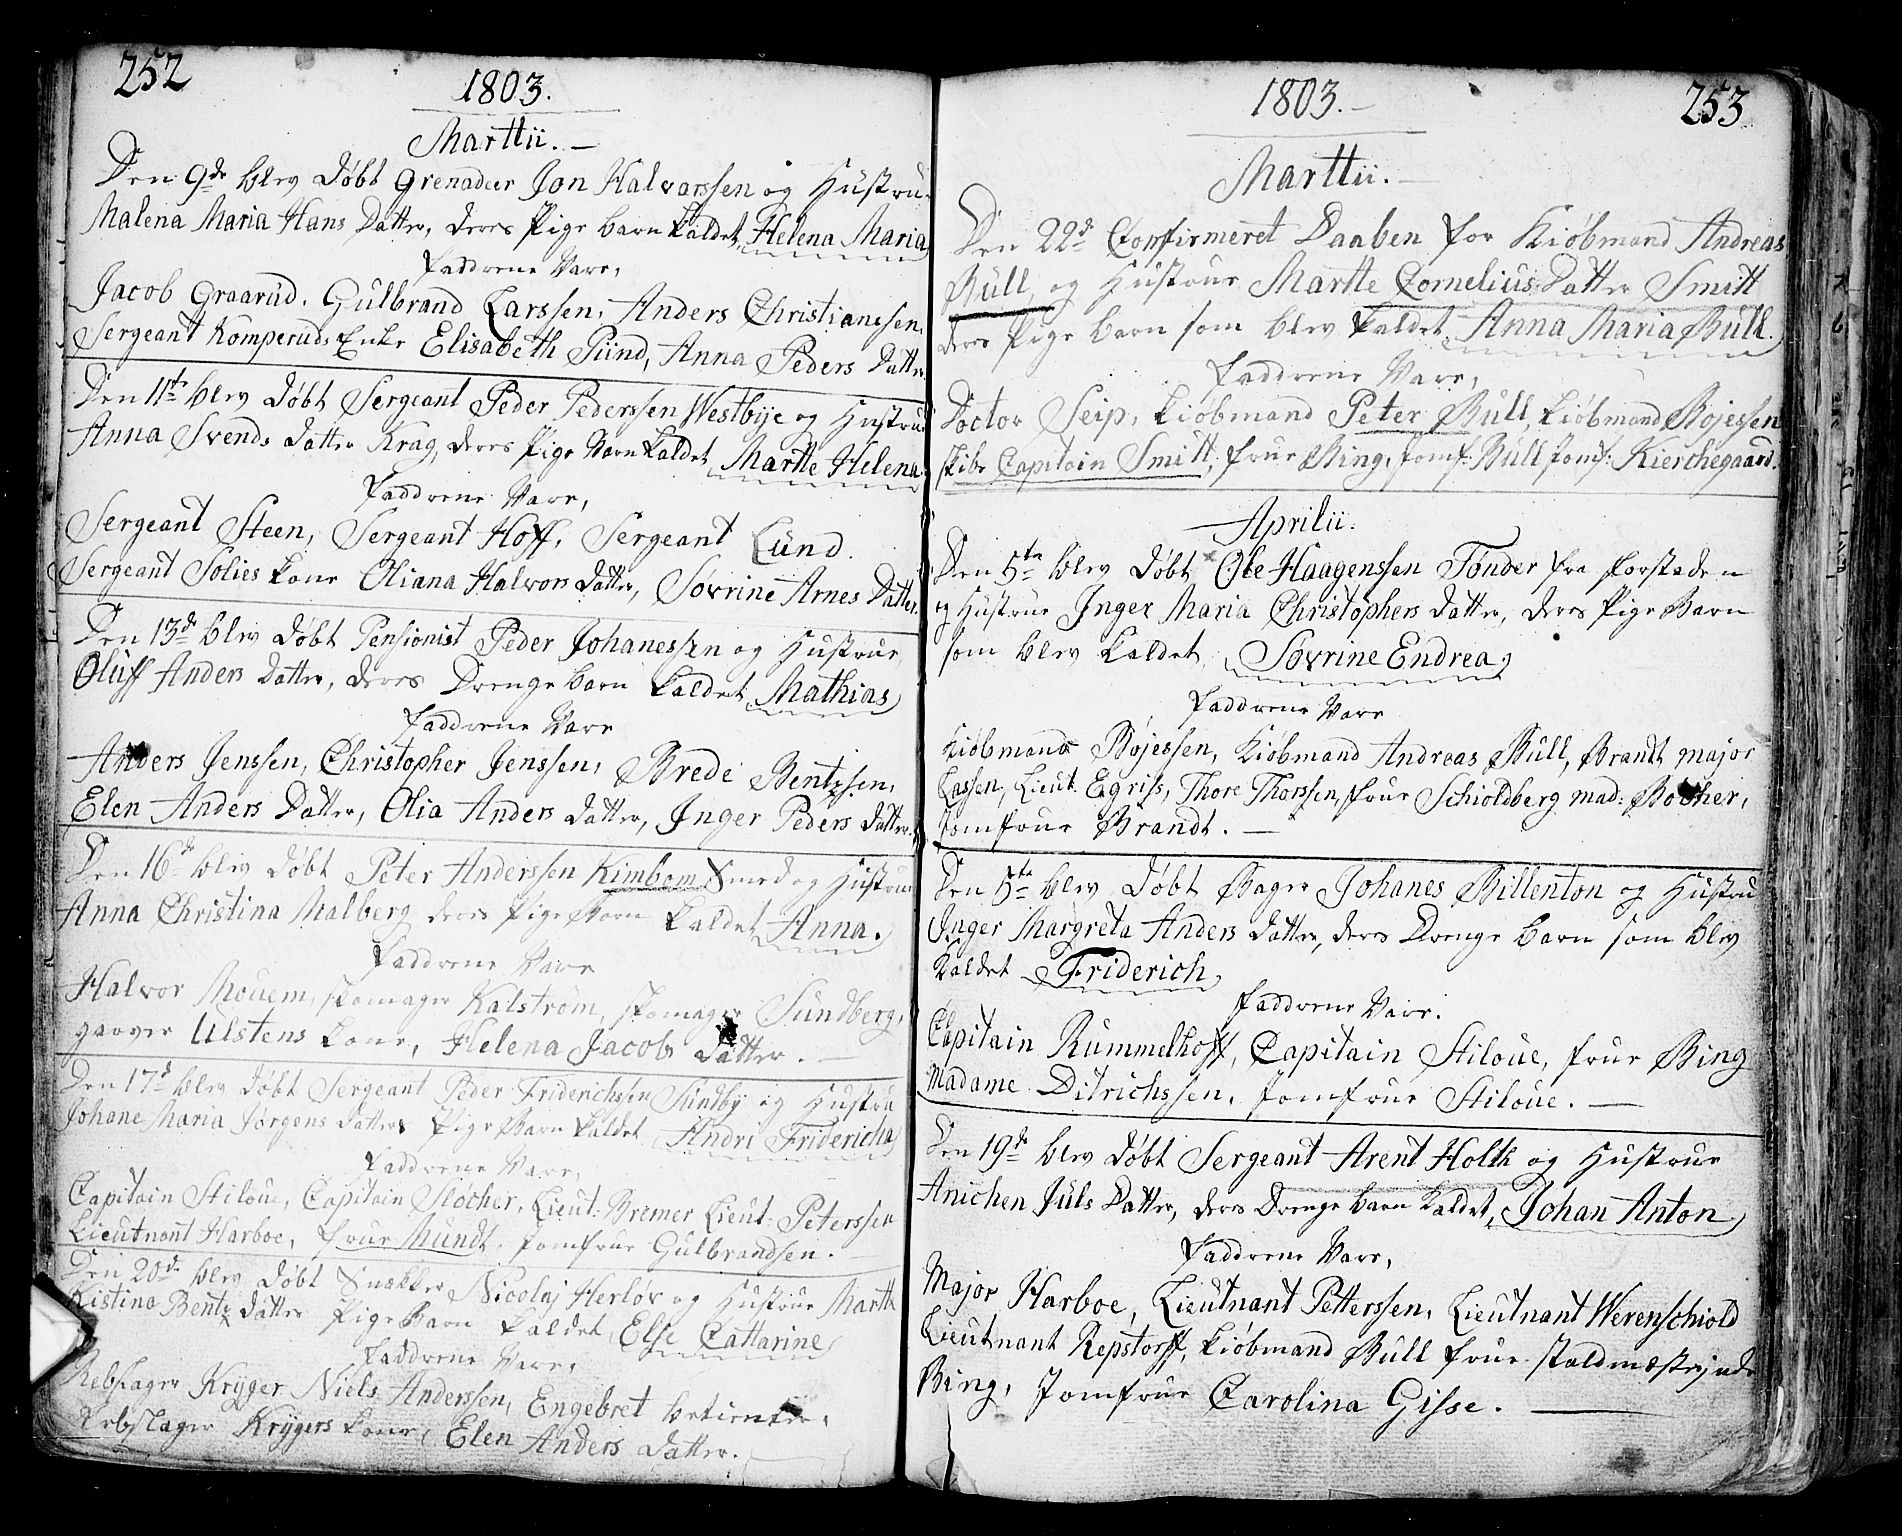 252
1803.
Marttii. —
Den 9de blev Døbt Grenadeer Jon Halvorssen og Hustrue
Malena Maria Hans Datter, deres Pige barn kaldet, Helena Maria
Faddrene Vare,
Jacob Graarud, Gulbrand Larssen, Anders Christianssen,
Sergeant Komperuds Enke Elisabeth Pünd, Anna Peders Datter
Den 11te blev Døbt Sergeant Peder Pederssen Westbÿe og Hustrue
Anna Svends datter Krag, deres Pige Barn kaldet, Martte Helena
Faddrene Vare,
Sergeant Steen, Sergeant Hoff, Sergeant Lund
Sergeant Solies kone Oliana Halvors datter, Søvrine Arnes Datter
Den 13de blev Døbt Pensionist Peder Johanessen og Hustrue
Oluff Anders datter, deres Drenge barn kaldet, Mathias
Faddrene Vare
Anders Jenssen, Christopher Jenssen, Brede Bentzsen,
Elen Anders Datter, Olia Anders datter, Inger Peders datter.
Den 16de blev Døbt Peter Anderssen Kimbom Smed og Hustrue
Anna Christina Malberg deres Pige Barn kaldet Anna.
Faddrene Vare
Halvor Mouem, skomager Kalstrøm, skomager Sundberg,
garver Ulstens kone, Helena Jacobs Datter. —
Den 17de blev Døbt Sergeant Peder Friderichssen Sundbÿ og Hustrue
Johane Maria Jørgens datters Pige Barn kaldet, Andri Fridericha
Faddrene Vare,
Capitain Stiloue, Capitain Støcher, Lieut: Bremer Lieut: Peterssen
Lieutnant Harboe, frue Mundt, Jomfrue Gulbrandsen. —
Den 20de blev Døbt Snækker Nicolaj Herløv og Hustrue Marthe
Kistina Bentz datter Pige Barn kaldet, Else Cattarine
Faddrene Vare,
Rebslager Krÿger Niels Anderssen, Engebret betienter,
Rebslager Krÿgers kone, Elen Anders datter.
253
1803. —
Marttii. —
Den 22de Confirmeret Daaben for Kiøbmand Andreas
Bull, og Hustrue Martte Cornelius Datter Smitt
deres Pige barn som blev kaldet, Anna Maria Bull.
Faddrene Vare,
Doctor Seip, kiøbmand Peter Bull, kiøbmand Bojessen
skibs Capitain Smitt, frue Bing, Jomf: Bull Jomf: Kierchegaard.
Aprilii.
Den 5te blev Døbt Ole Haagenssen Tonder fra forstaden
og Hustrue Inger Maria Christophers datter, deres Pige Barn
som blev kaldet, Sovrine Endrea,
Faddrene Vare
Kiøbmand Bojessen, Kiøbmand Andreas Bull, Brandt major
Lassen, Lieut. Egriss, Thore Thorssen, frue Schioldberg mad: Bocher,
Jomfrue Brandt. —
Den 5te blev Døbt Bager Johanes Billenton og Hustru
Inger Margreta Anders datter, deres Drenge barn som blev
kaldet Friderich
Faddrene Vare.
Capitain Rummelhoff, Capitain Stiloue, frue Bing
Madame Ditrichssen, Jomfrue Stiloue. —
Den 19de blev Døbt Sergeant Arent Holth og Hustrue
Anichen Juls Datter, deres Drenge barn kaldet, Johan Anton
Faddrene Vare,
Major Harboe, Lieutnant Petterssen, Lieutnant Werenschiold
Lieutnant Repstorff, kiøbmand Bull frue staldmesterinde
Bing, Jomfrue Carolina Gisse. —